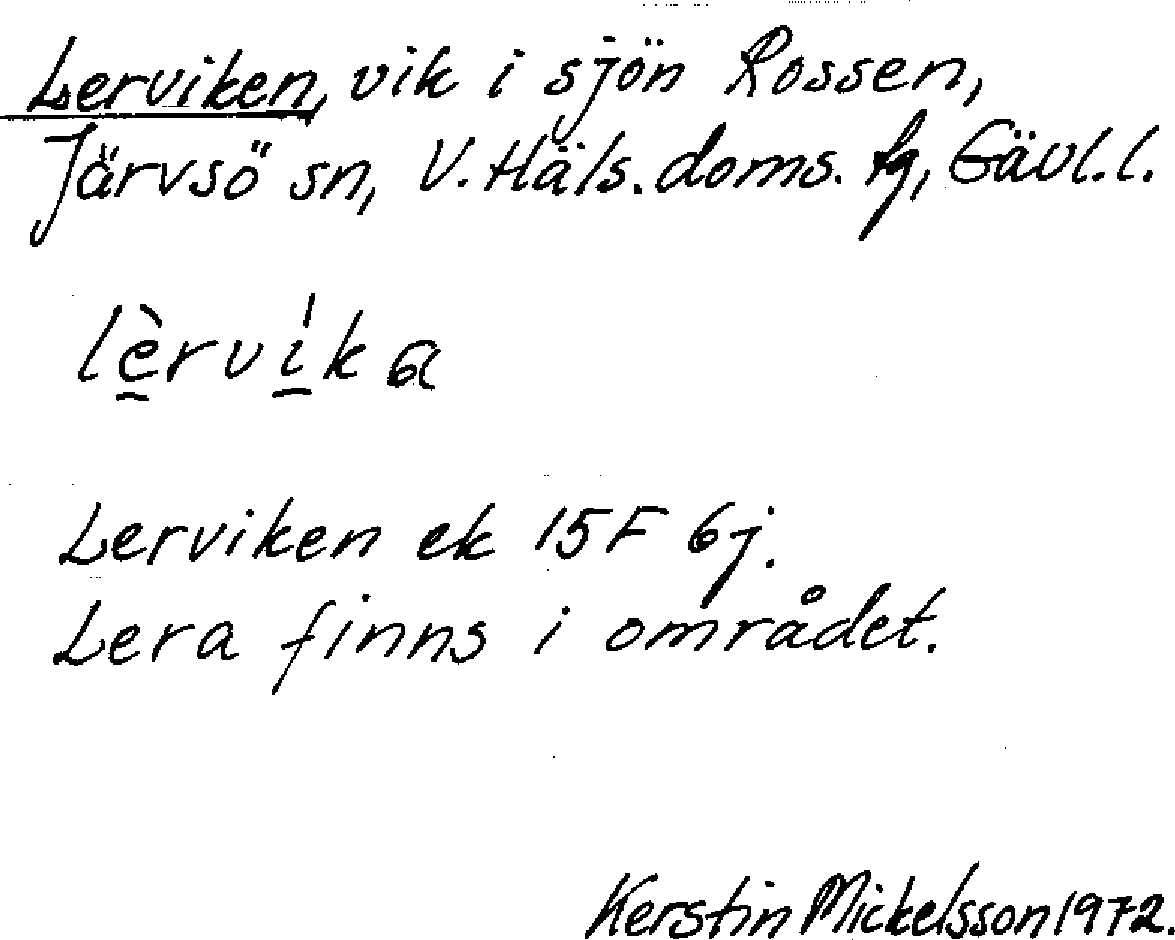 Lerviken, vik i sjön Rossen,
Järvsö sn, V. Häls. doms. fq, Gävl. l.
lèrvíka
Lerviken ek 15F 6j.
Lera finns i området.
Kerstin Mickelsson 1972.